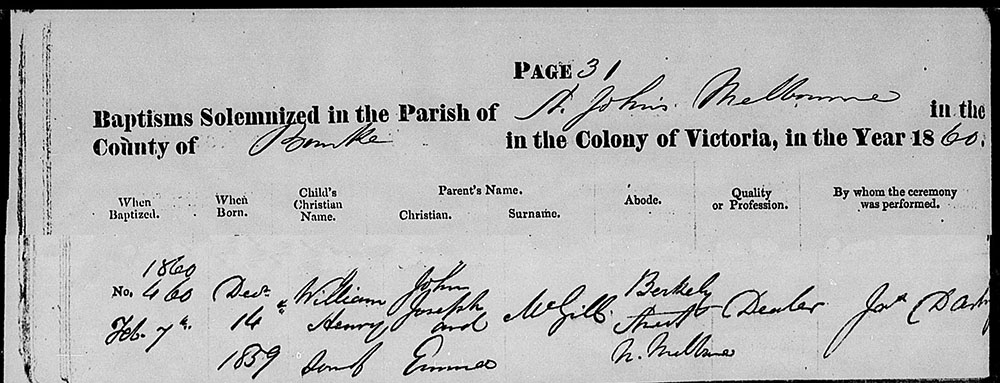 PAGE 31
Baptisms Solemnized in the Parish of St. John's Melbourne in the
County of Bourke in the Colony of Victoria, in the Year 1860.
When Baptized.
When Born.
Child's Christian Name.
Parent's Name.
Christian.
Surname.
Abode.
Quality or Profession.
By whom the ceremony was performed.
1860
No. 460
Feb. 7th
Decr. 14th 1859
William Henry son of
John Joseph and Emma
McGill
Berkely Street N. Melbne
Dealer